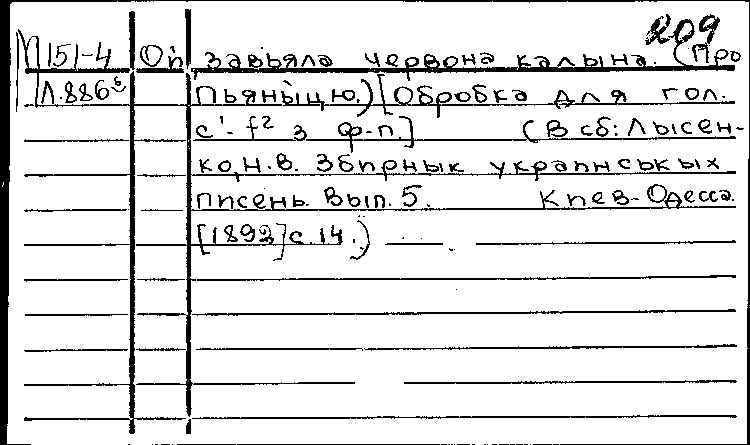 209
М 151-4 Оп завьяла червона калына. (Про
Л.886⁶ Пьяныцю.) [Обробка для гол.
c'-f² з ф-п.] (В сб: Лысен-
ко, Н.В. Збирнык украинськых
писень. Вып. 5. Киев-Одесса.
[1892] с. 14.)